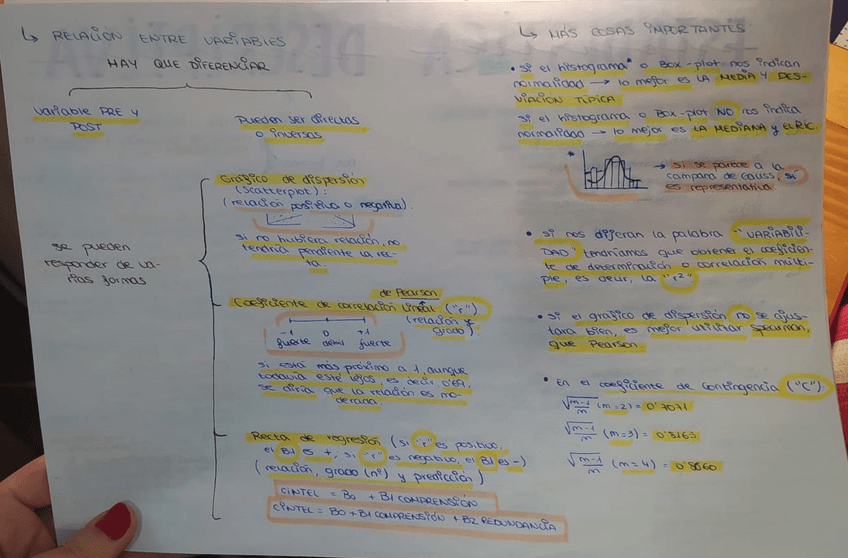 ↳ RELACIÓN ENTRE VARIABLES
HAY QUE DIFERENCIAR
Variable PRE y
POST
se pueden
responder de va-
rias formas
Pueden ser directas
o inversas
Gráfico de dispersión
(scatterplot):
(relación positiva o negativa).
si no hubiera relación, no
tendría pendiente la rec-
ta.
de Pearson
Coeficiente de correlación Lineal ("r")
(relación y
grado)
-1 0 +1
fuerte débil fuerte
si está más próximo a 1, aunque
todavía esté lejos, es decir, 0'67,
se diría que la relación es mo-
derada.
Recta de regresión (si "r" es positivo,
el B1 es +, si "r" es negativo, el B1 es -)
(relación, grado (nº) y predicción)
CINTEL = B0 + B1 COMPRENSIÓN
CINTEL = B0 + B1 COMPRENSIÓN + B2 REDUNDANCIA
↳ MÁS COSAS IMPORTANTES
• Si el histograma* o Box-plot nos indican
normalidad → lo mejor es LA MEDIA Y DES-
VIACIÓN TÍPICA
Si el histograma o Box-plot NO nos indica
normalidad → lo mejor es LA MEDIANA y EL RIC.
* → si se parece a la
campana de Gauss, sí
es representativa
• si nos dijeran la palabra "VARIABILI-
DAD" tendríamos que obtener el coeficien-
te de determinación o correlación múlti-
ple, es decir, la "r²"
• si el gráfico de dispersión no se ajus-
tara bien, es mejor utilizar Spearman,
que Pearson.
• En el coeficiente de contingencia ("C")
√m-1/m (m=2) = 0'7071
√m-1/m (m=3) = 0'8163
√m-1/m (m=4) = 0'8660